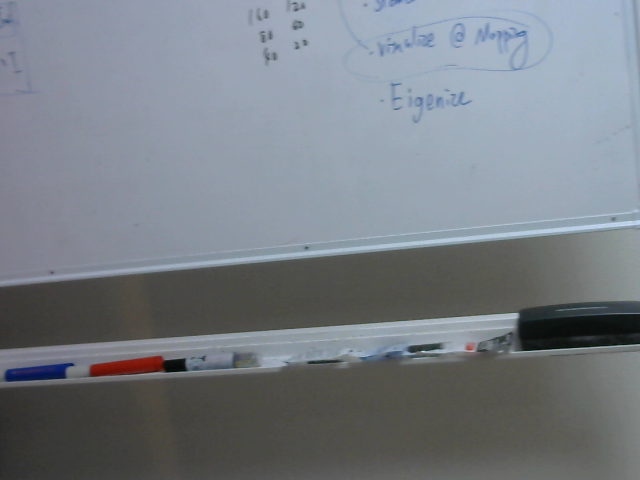 160 120
80 60
40 20
· visualize @ Mapping
· Eigenize